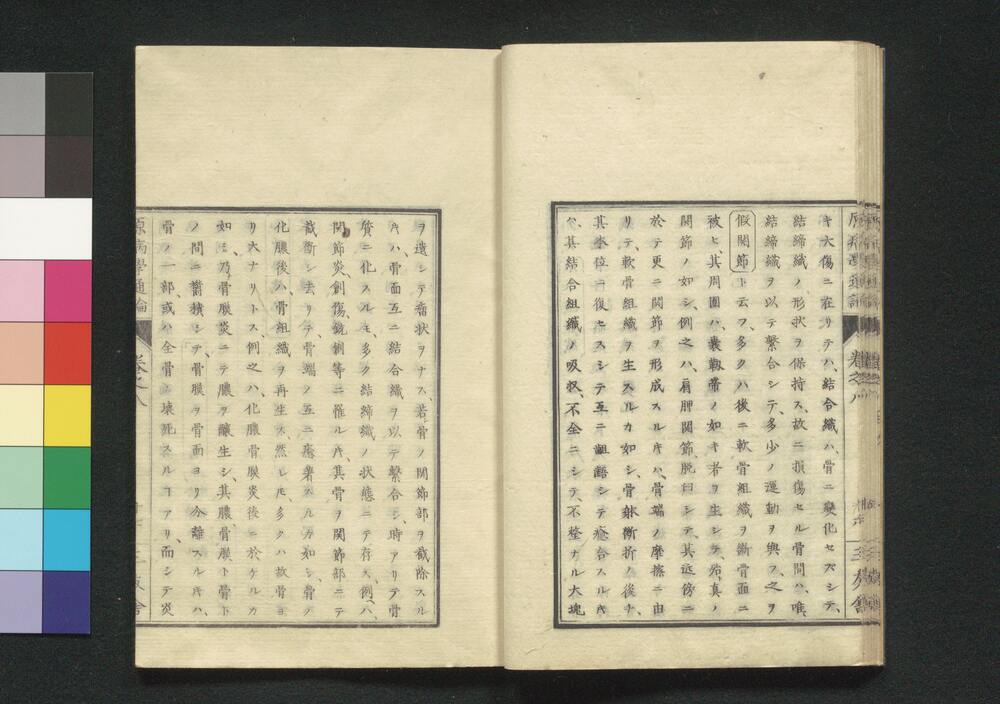 キ大傷ニ在リテハ、結合織ハ、骨ニ變化セズシテ、
結締織ノ形状ヲ保持ス、故ニ損傷セル骨間ハ、唯、
結締織ヲ以テ繫合シテ、多少ノ運動ヲ與フ、之ヲ
假關節ト云フ、多クハ後ニ軟骨組織ヲ斷骨面ニ
被ヒ、其周圍ハ、囊韌帶ノ如キ者ヲ生シテ、宛、眞ノ
關節ノ如シ、例之ハ、肩胛關節脱臼シテ、其近傍ニ
於テ更ニ關節ヲ形成スルキハ、骨端ノ摩擦ニ由
リテ、軟骨組織ヲ生スルカ如シ、骨躰斷折ノ後チ、
其本位ニ復セスシテ互ニ齟齬シテ癒合スルキ
ハ、其結合組織ノ吸収、不全ニシテ、不整ナル大塊
原病學通論
卷之八
三友舍
ヲ遺シテ瘤状ヲナス、若骨ノ關節部ヲ截除スル
キハ、骨面互ニ結合織ヲ以テ繫合シ、時アリテ骨
質ニ化スルモ、多ク結締織ノ状態ニテ存ス、例ハ、
關節炎創傷、銃創等ニ罹ルキ、其骨ヲ關節部ニテ
截斷シ去リテ骨端ノ互ニ癒着スルカ如シ、骨ノ
化膿後ハ骨組織ヲ再生ス、然レモ多クハ故骨ヨ
リ大ナリトス、例之ハ、化膿骨膜炎後ニ於ケルカ
如シ、乃骨膜炎ニテ膿ヲ釀生シ、其膿、骨膜ト骨ト
ノ間ニ蓄積シテ、骨膜ヲ骨面ヨリ分離スルキハ、
骨ノ一部或ハ全骨ノ壞死スルヿアリ、而シテ炎
原病學通論
卷之八
三友舍